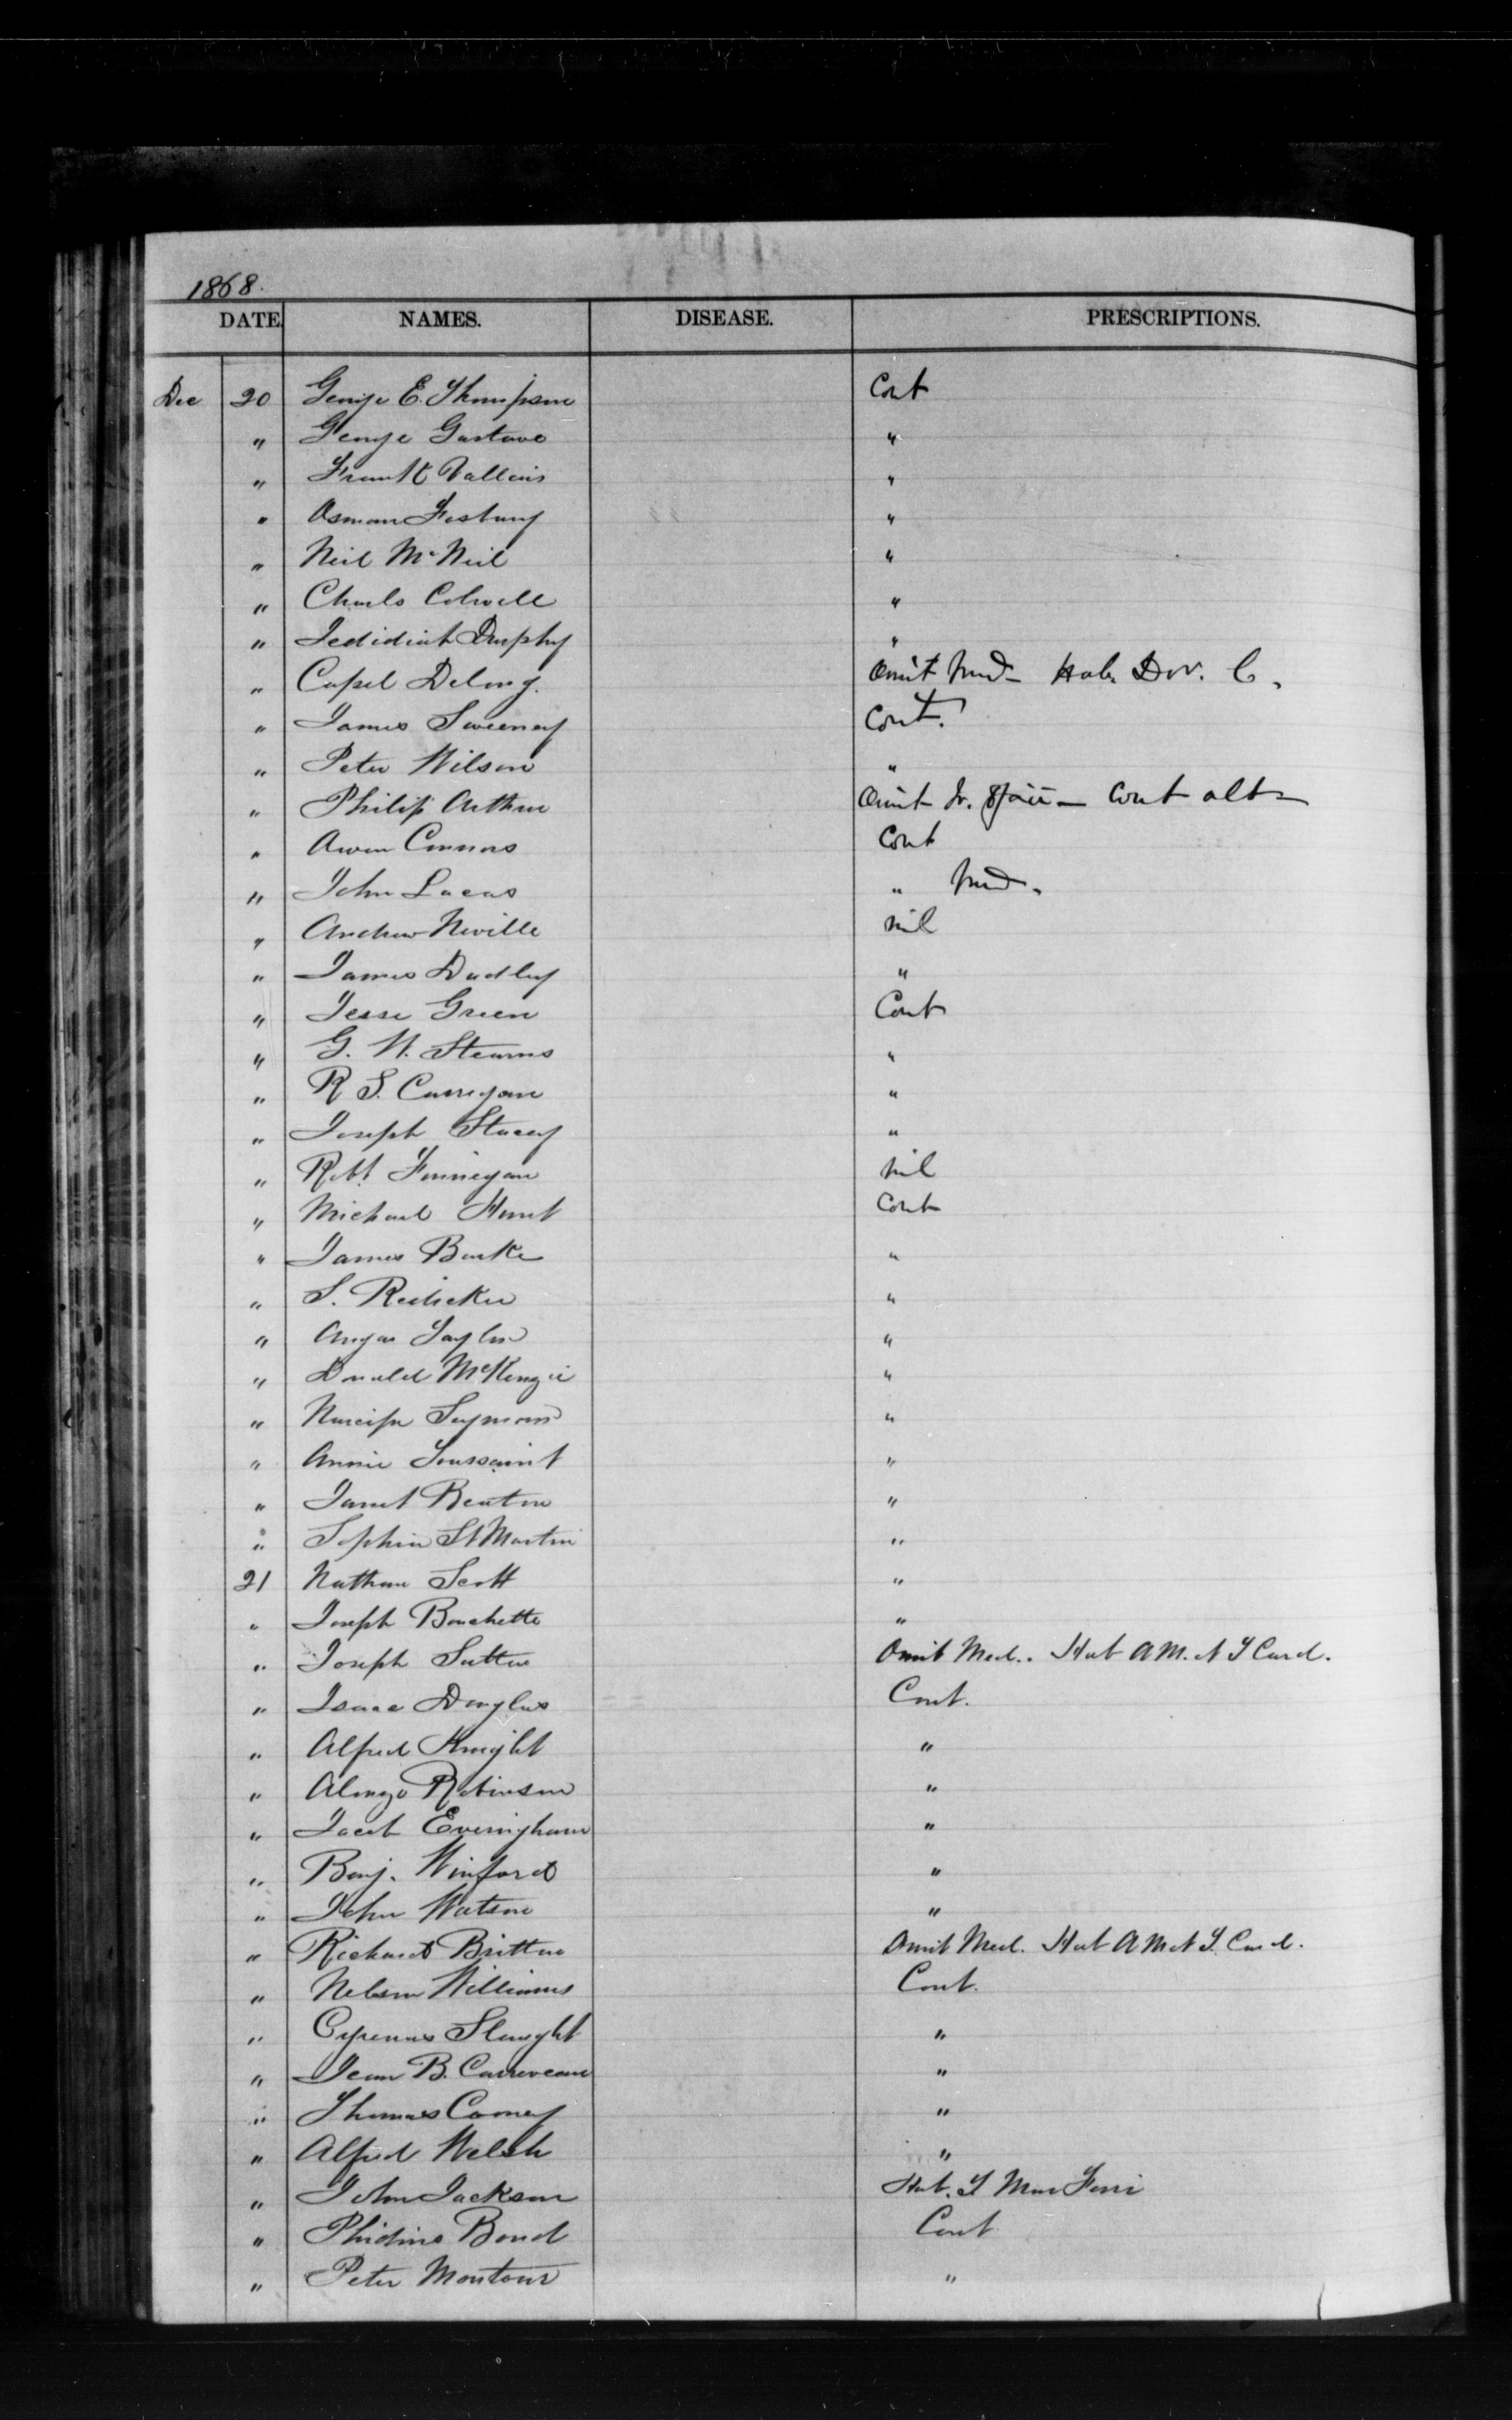 1868.
DATE NAMES. DISEASE. PRESCRIPTIONS.
Dec 20 George E. Thompson Cont
" George Gustave "
" Frank Vallois "
" Osman Fosbury "
" Neil McNeil "
" Charls Colwell "
" Jedidiah Druphy "
" Capel Delong. Omit Med - Hab. Dov. C.
" James Sweeney Cont.
" Peter Wilson "
" Philip Arthur Omit Cont alt
" Awen Connors Cont
" John Lucas " Med.
" Andrew Neville nil
" James Dudley "
" Jesse Green Cont
" G. W. Stearns "
" R S. Corrigan "
" Joseph Stacey "
" Robt Finnegan nil
" Michael Hunt Cont
" James Burke "
" S. "
" Angus Taylor "
" Donald McKenzie "
" Narcisse Seymour "
" Annie Toussaint "
" Janet Benton "
" Sophia St Martin "
21 Nathan Scott "
" Joseph Bouchette "
" Joseph Sutton Omit Med.. Hab A M. et T Card.
" Isaac Douglas Cont.
" Alfred Knight "
" Alonzo Robinson "
" Jacob Everingham "
" Benj. Winford "
" John Watson "
" Richard Britton Omit Med. Hab A M et T. Card.
" Nelson Williams Cont.
" Cyrenus Slaught "
" Jean B. Carriveau "
" Thomas Cooney "
" Alfred Welsh "
" John Jackson Hab. T Mur Ferri
" Phidins Bond Cont
" Peter Montour "